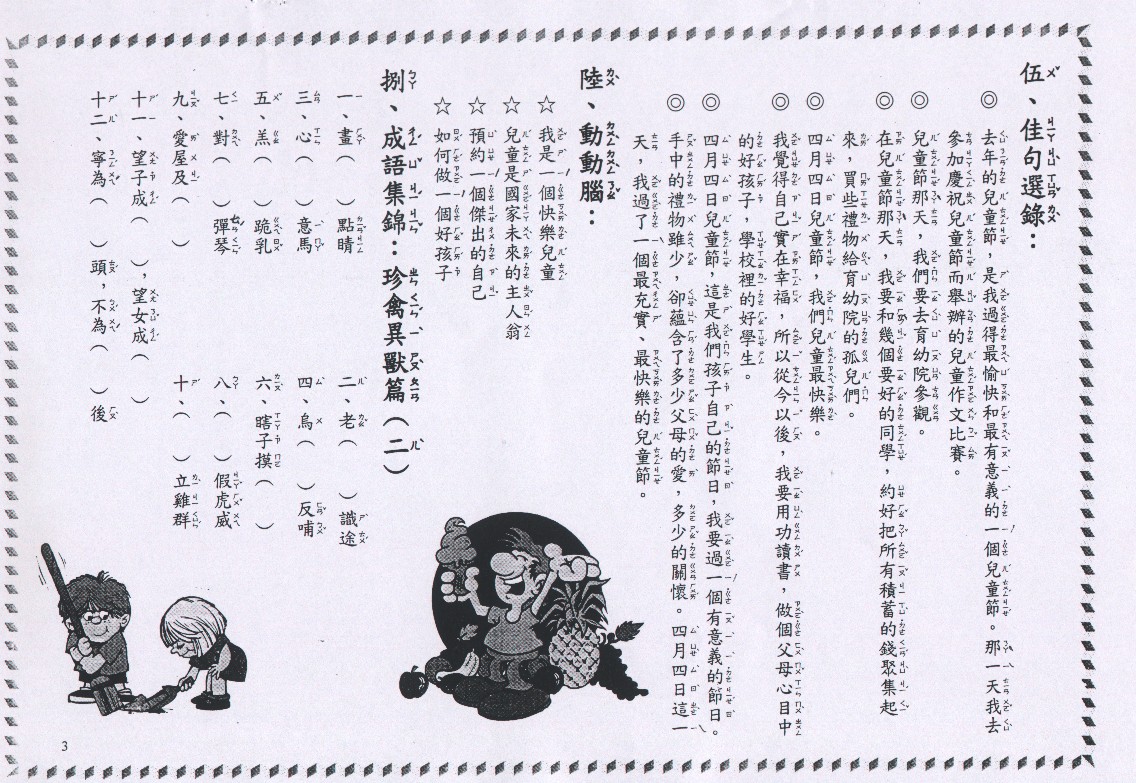 伍、佳句選錄：
◎去年的兒童節，是我過得最愉快和最有意義的一個兒童節。那一天我去
參加慶祝兒童節而舉辦的兒童作文比賽。
◎兒童節那天，我們要去育幼院參觀。
◎在兒童節那天，我要和幾個要好的同學，約好把所有積蓄的錢聚集起
來，買些禮物給育幼院的孤兒們。
◎四月四日兒童節，我們兒童最快樂。
◎我覺得自己實在幸福，所以從今以後，我要用功讀書，做個父母心目中
的好孩子，學校裡的好學生。
◎四月四日兒童節，這是我們孩子自己的節日，我要過一個有意義的節日。
◎手中的禮物雖少，卻蘊含了多少父母的愛，多少的關懷。四月四日這一
天，我過了一個最充實、最快樂的兒童節。
陸、動動腦：
☆我是一個快樂兒童
☆兒童是國家未來的主人翁
☆預約一個傑出的自己
☆如何做一個好孩子
捌、成語集錦：珍禽異獸篇（二）
一、畫（ ）點睛
二、老（ ）識途
三、心（ ）意馬
四、烏（ ）反哺
五、羔（ ）跪乳
六、瞎子摸（ ）
七、對（ ）彈琴
八、（ ）假虎威
九、愛屋及（ ）
十、（ ）立雞群
十一、望子成（ ），望女成（ ）
十二、寧為（ ）頭，不為（ ）後
3